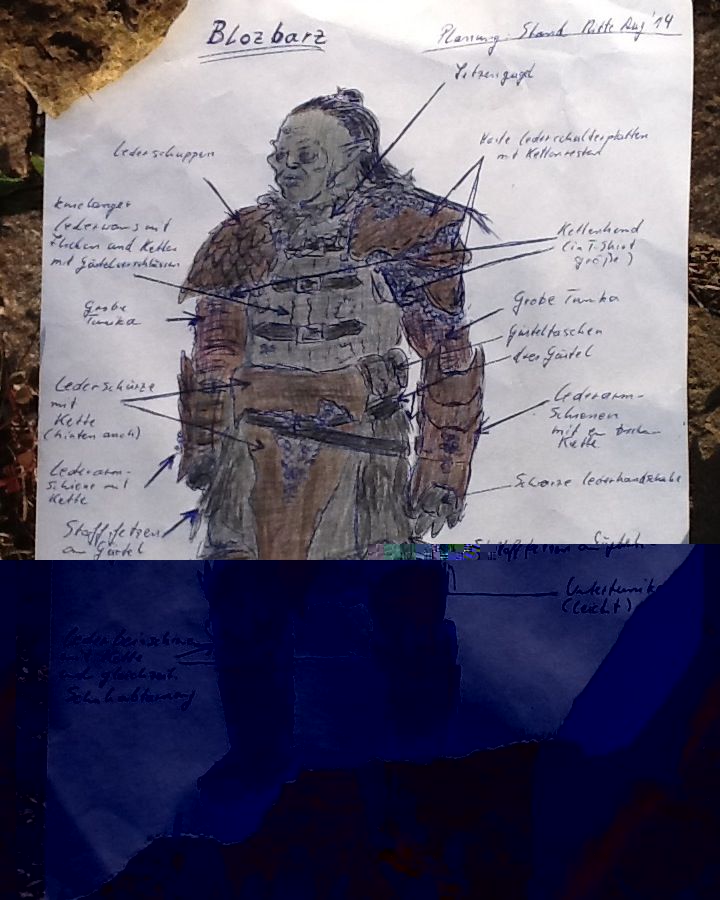 Blozbarz
Planung: Stand Mitte Aug '14
Fetzengugel
Lederschuppen
Harte Lederschulterplatten
mit Kettenresten
knielanger
Lederwams mit
Flicken und Ketten
mit Gürtelverschlüssen
Kettenhemd
(in T-Shirt
größe)
Grobe
Tunika
Grobe Tunika
Gürteltaschen
drei Gürtel
Lederschürze
mit
Kette
(hinten auch)
Lederarm-
Schienen
mit
Kette
Lederarm-
schiene mit
Kette
Schwarze Lederhandschuhe
Stofffetzen
am Gürtel
Stofffetzen am Gürtel
Untertunika
(leicht)
Lederbeinschienen
mit Kette
und gleichzeit.
Schuhabtarnung